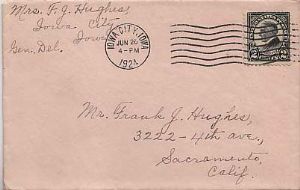 Mrs. F. J. Hughes
Iowa City,
Iowa
Gen. Del.
IOWA CITY, IOWA
JUN 26
4-PM
1924
Mr. Frank J. Hughes,
3222-4th ave.,
Sacramento,
Calif.